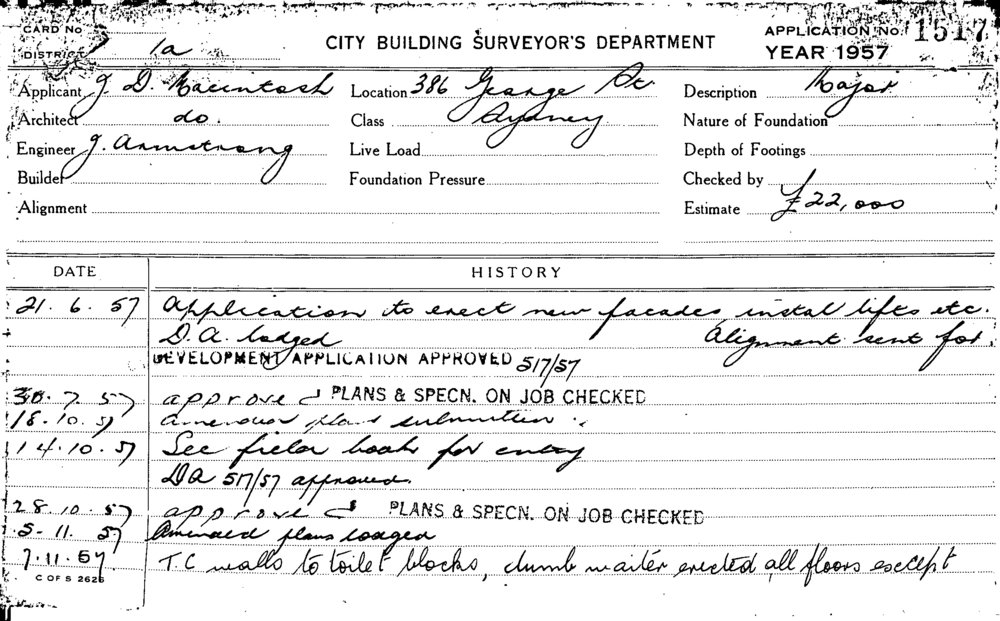 CARD No
DISTRICT 1a
CITY BUILDING SURVEYOR'S DEPARTMENT
APPLICATION No. 1517
YEAR 1957
Applicant J. D. Macintosh Location 386 George St. Description Major
Architect do. Class Sydney Nature of Foundation
Engineer J. Armstrong Live Load Depth of Footings
Builder Foundation Pressure Checked by
Alignment Estimate £22,000
DATE HISTORY
21. 6. 57 Application to erect new facades, instal lifts etc.
D.A. lodged Alignment sent for.
DEVELOPMENT APPLICATION APPROVED 517/57
30. 7. 57 approved PLANS & SPECN. ON JOB CHECKED
18. 10. 57 amended plans submitted
14. 10. 57 See field book for entry
DA 517/57 approved.
28. 10. 57 approved PLANS & SPECN. ON JOB CHECKED
5. 11. 57 Amended plans lodged
7. 11. 57. T.C walls to toilet blocks, dumb waiter erected all floors except
C OF S 2626